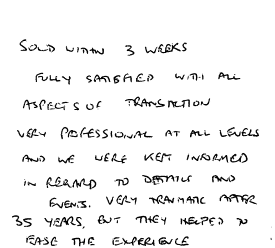 SOLD WITHIN 3 WEEKS
FULLY SATISFIED WITH ALL
ASPECTS OF TRANSACTION
VERY PROFESSIONAL AT ALL LEVELS
AND WE WERE KEPT INFORMED
IN REGARD TO DETAILS AND
EVENTS. VERY TRAUMATIC AFTER
35 YEARS, BUT THEY HELPED TO
EASE THE EXPERIENCE